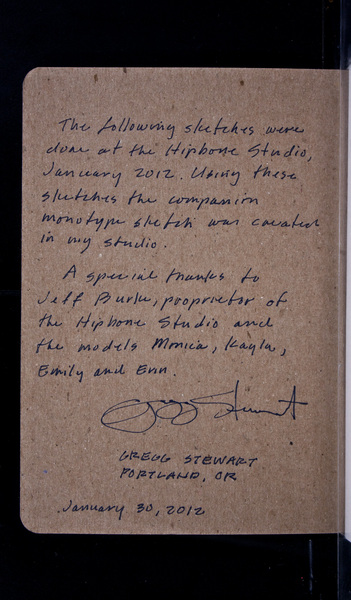 The following sketches were
done at the Hipbone Studio,
January 2012. Using these
sketches the companion
monotype sketch was created
in my studio.
A special thanks to
Jeff Burke, proprietor of
the Hipbone Studio and
the models Monica, Kayla,
Emily and Erin.
Gregg Stewart
GREGG STEWART
PORTLAND, OR
January 30, 2012